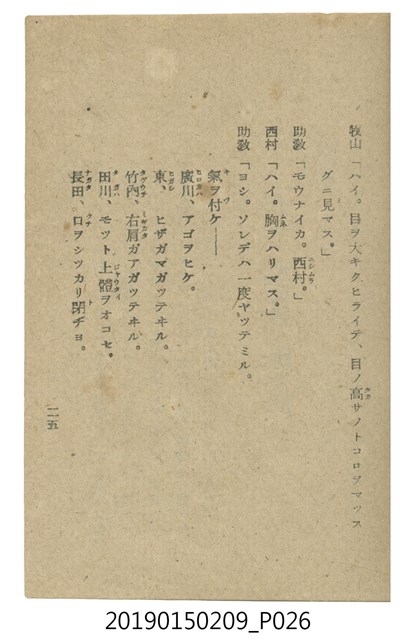 牧山「ハイ。目ヲ大キクヒライテ、目ノ高サノトコロヲマッス
グニ見マス。」
助教「モウナイカ。西村。」
西村「ハイ。胸ヲハリマス。」
助教「ヨシ。ソレデハ一度ヤッテミル。
氣ヲ付ケ──
廣川、アゴヲヒケ。
東、ヒザガマガッテヰル。
竹內、右肩ガアガッテヰル。
田川、モット上體ヲオコセ。
長田、口ヲシッカリ閉ヂヨ。
二五
20190150209_P026